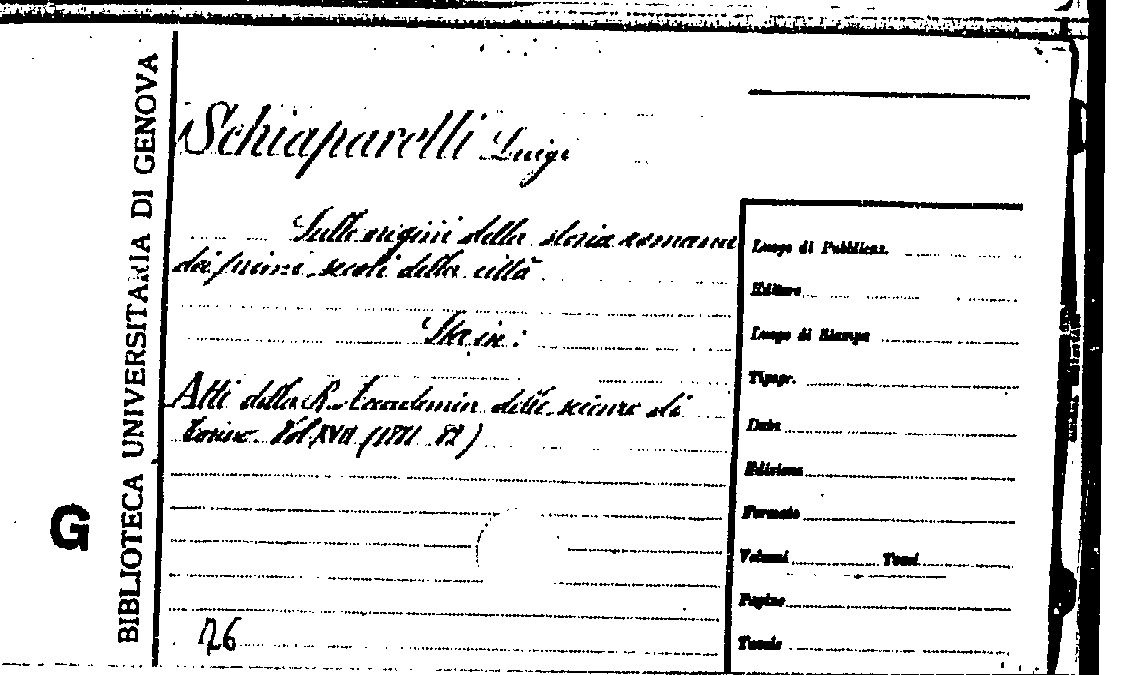 BIBLIOTECA UNIVERSITARIA DI GENOVA
G
Schiaparelli Luigi
Sulle origini della storia romana
dei primi secoli della città
Sta in:
Atti della R. Accademia delle scienze di
Torino. Vol XVII (1881 82)
Luogo di Pubblicaz.
Editore
Luogo di Stampa
Tipogr.
Data
Edizione
Formato
Volumi Tomi
Pagine
Tavole